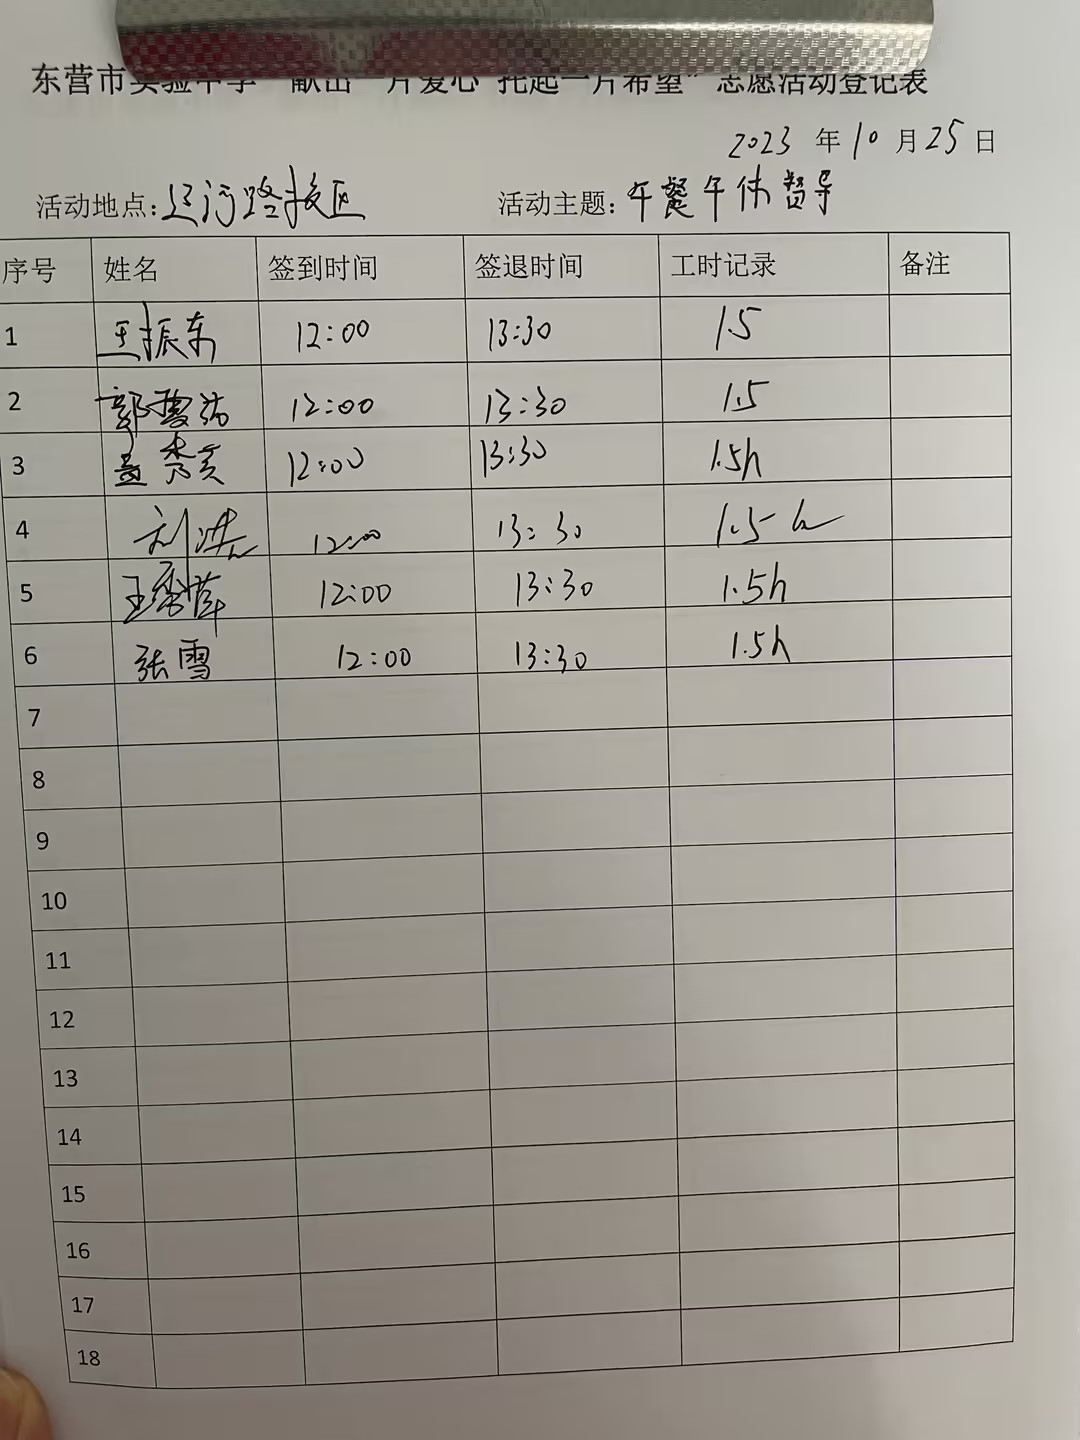 东营市实验中学“献出一片爱心 托起一片希望”志愿活动登记表
2023 年 10 月 25 日
活动地点: 运河路校区 活动主题: 午餐午休督导
序号 姓名 签到时间 签退时间 工时记录 备注
1 王振东 12:00 13:30 1.5
2 郭雪 12:00 13:30 1.5
3 孟秀英 12:00 13:30 1.5h
4 刘 12:00 13:30 1.5h
5 王秀萍 12:00 13:30 1.5h
6 张雪 12:00 13:30 1.5h
7
8
9
10
11
12
13
14
15
16
17
18